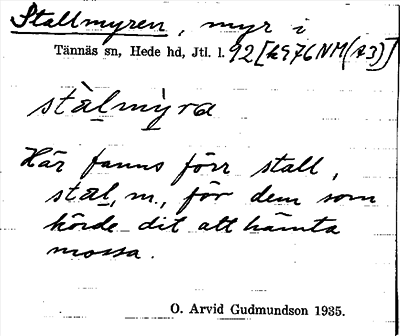 Stallmyren, myr i
Tännäs sn, Hede hd, Jtl. l. 92 [k976NM(A3)]
stàlmỳra
Här fanns förr stall,
stal, m., för dem som
körde dit att hämta
mossa.
O. Arvid Gudmundson 1935.